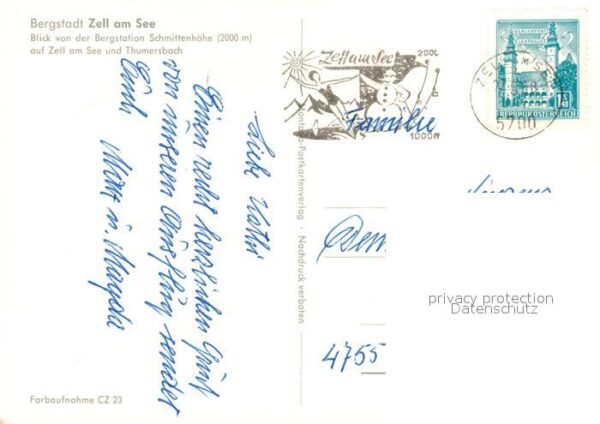 Bergstadt Zell am See
Blick von der Bergstation Schmittenhöhe (2000 m)
auf Zell am See und Thumersbach
Einen recht herzlichen Gruß
von unserem Ausflug sendet
Euch
Farbaufnahme CZ 23
Postkartenverlag · Nachdruck verboten
Zell am See
2000
1000 m
ZELL AM SEE
5700
REPUBLIK ÖSTERREICH
Familie
4755
privacy protection
Datenschutz